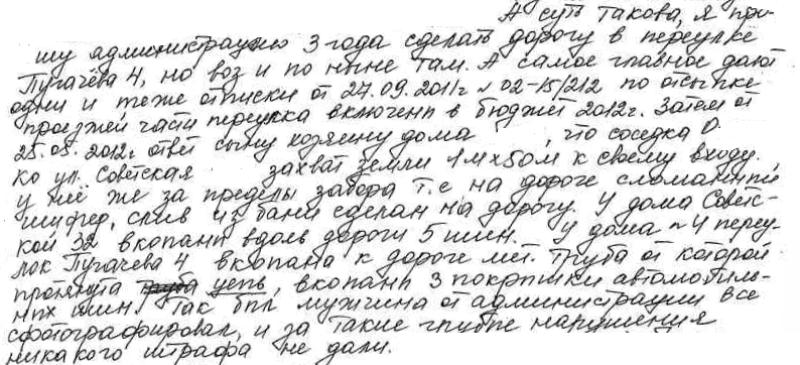 А суть такова, я при-
шу администрацию 3 года сделать дорогу в переулке
Пугачёва 4, но воз и по ныне там. А самое главное дают
одни и те же отписки от 27.09.2011г № 02-15/212 по отсыпке
проезжей части переулка включено в бюджет 2012г. Затем от
25.05.2012г ответ сыну хозяину дома , что соседка О.
ко ул. Советская захват земли 1м х 50м к своему входу,
у неё же за пределы забора т.е на дороге сломанный
шифер, слив из бани сделан на дорогу. У дома Советс-
кой 32 вкопаны вдоль дороги 5 шин. У дома № 4 переу-
лок Пугачева 4 вкопана к дороге мет. труба от которой
протянута труба цепь, вкопаны 3 покрышки автомобиль-
ных шин. Так был мужчина от администрации все
сфотографировал, и за такие грубые нарушения
никакого штрафа не дали.